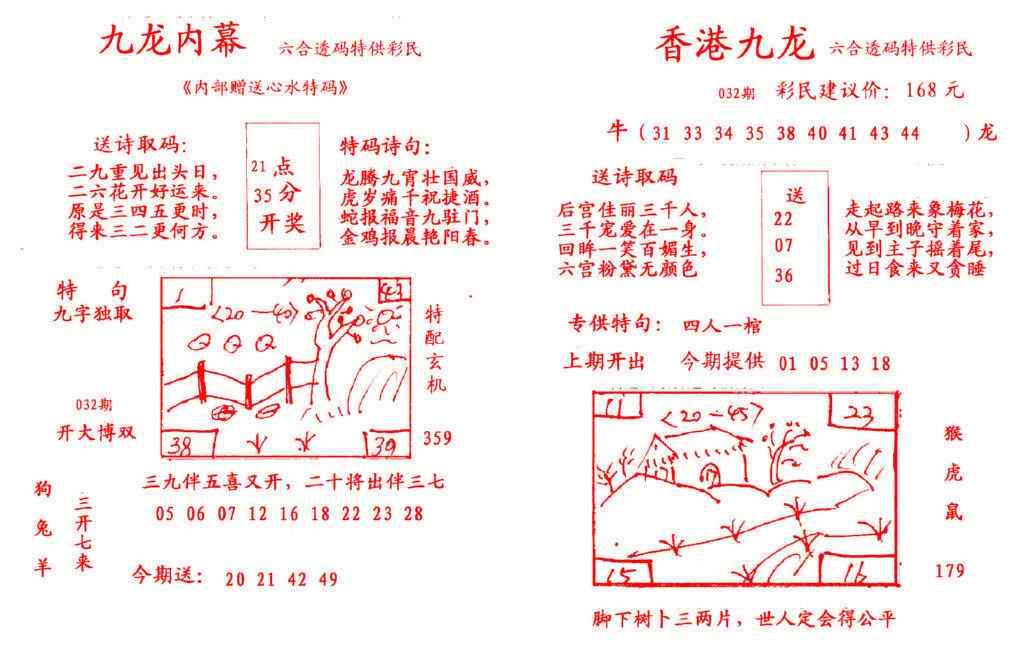 九龙内幕 六合透码特供彩民
《内部赠送心水特码》
送诗取码:
二九重见出头日,
二六花开好运来。
原是三四五更时,
得来三二更何方。
21点
35分
开奖
特码诗句:
龙腾九宵壮国威,
虎岁痛千祝捷酒。
蛇报福音九驻门,
金鸡报晨艳阳春。
特句
九字独取
032期
开大博双
1
43
<20-40>
38
39
特配玄机
359
三九伴五喜又开,二十将出伴三七
05 06 07 12 16 18 22 23 28
狗兔羊
三开七来
今期送: 20 21 42 49
香港九龙 六合透码特供彩民
032期 彩民建议价: 168元
牛(31 33 34 35 38 40 41 43 44 )龙
送诗取码
后宫佳丽三千人,
三千宠爱在一身。
回眸一笑百媚生,
六宫粉黛无颜色
送
22
07
36
走起路来象梅花,
从早到晚守着家,
见到主子摇着尾,
过日食来又贪睡
专供特句: 四人一棺
上期开出 今期提供 01 05 13 18
11
23
<20-45>
15
16
猴虎鼠
179
脚下树卜三两片,世人定会得公平